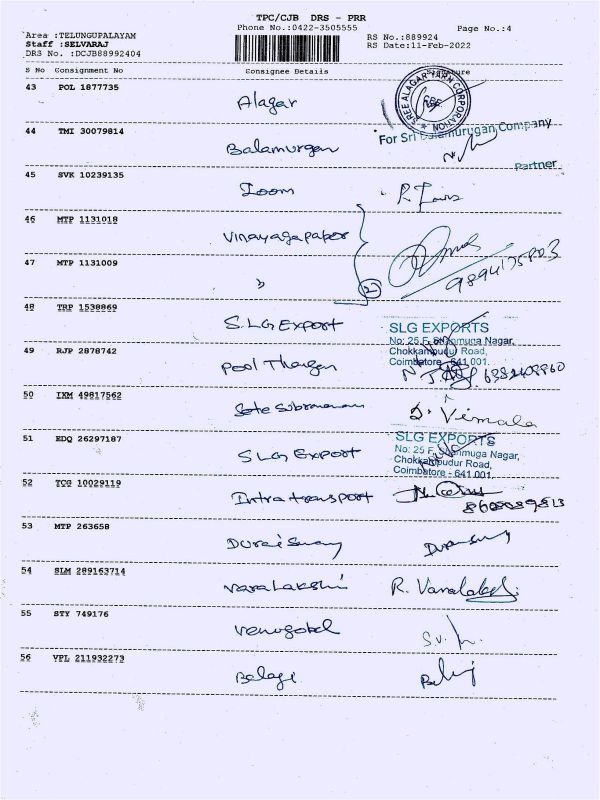 TPC/CJB DRS - PRR
Phone No.:0422-3505555
Page No.:4
Area :TELUNGUPALAYAM
Staff :SELVARAJ
DRS No. :DCJB88992404
RS No.:889924
RS Date:11-Feb-2022
S No Consignment No Consignee Details
43 POL 1877735 Alagar
SREE ALAGAR YARN CORPORATION
44 TMI 30079814 Balamurgan
For Sri Balamurugan Company
Partner
45 SVK 10239135 Loom
46 MTP 1131018 Vinayagapaper
9894175803
47 MTP 1131009 "
2
48 TRP 1538869 S.LG Export
SLG EXPORTS
No: 25 F, Shanmuga Nagar,
Chokkampudur Road,
Coimbatore - 641 001.
49 RJP 2878742
50 IXM 49817562
D. Vimala
51 EDQ 26297187 SLG Export
SLG EXPORTS
No: 25 F, Shanmuga Nagar,
Chokkampudur Road,
Coimbatore - 641 001.
52 TCG 10029119 Intra transport
53 MTP 263658 Duraiswamy
54 SLM 289163714 Varalakshi R. Varalakshi
55 STY 749176 Venugobal
56 VPL 211932273 Balaji Balaji